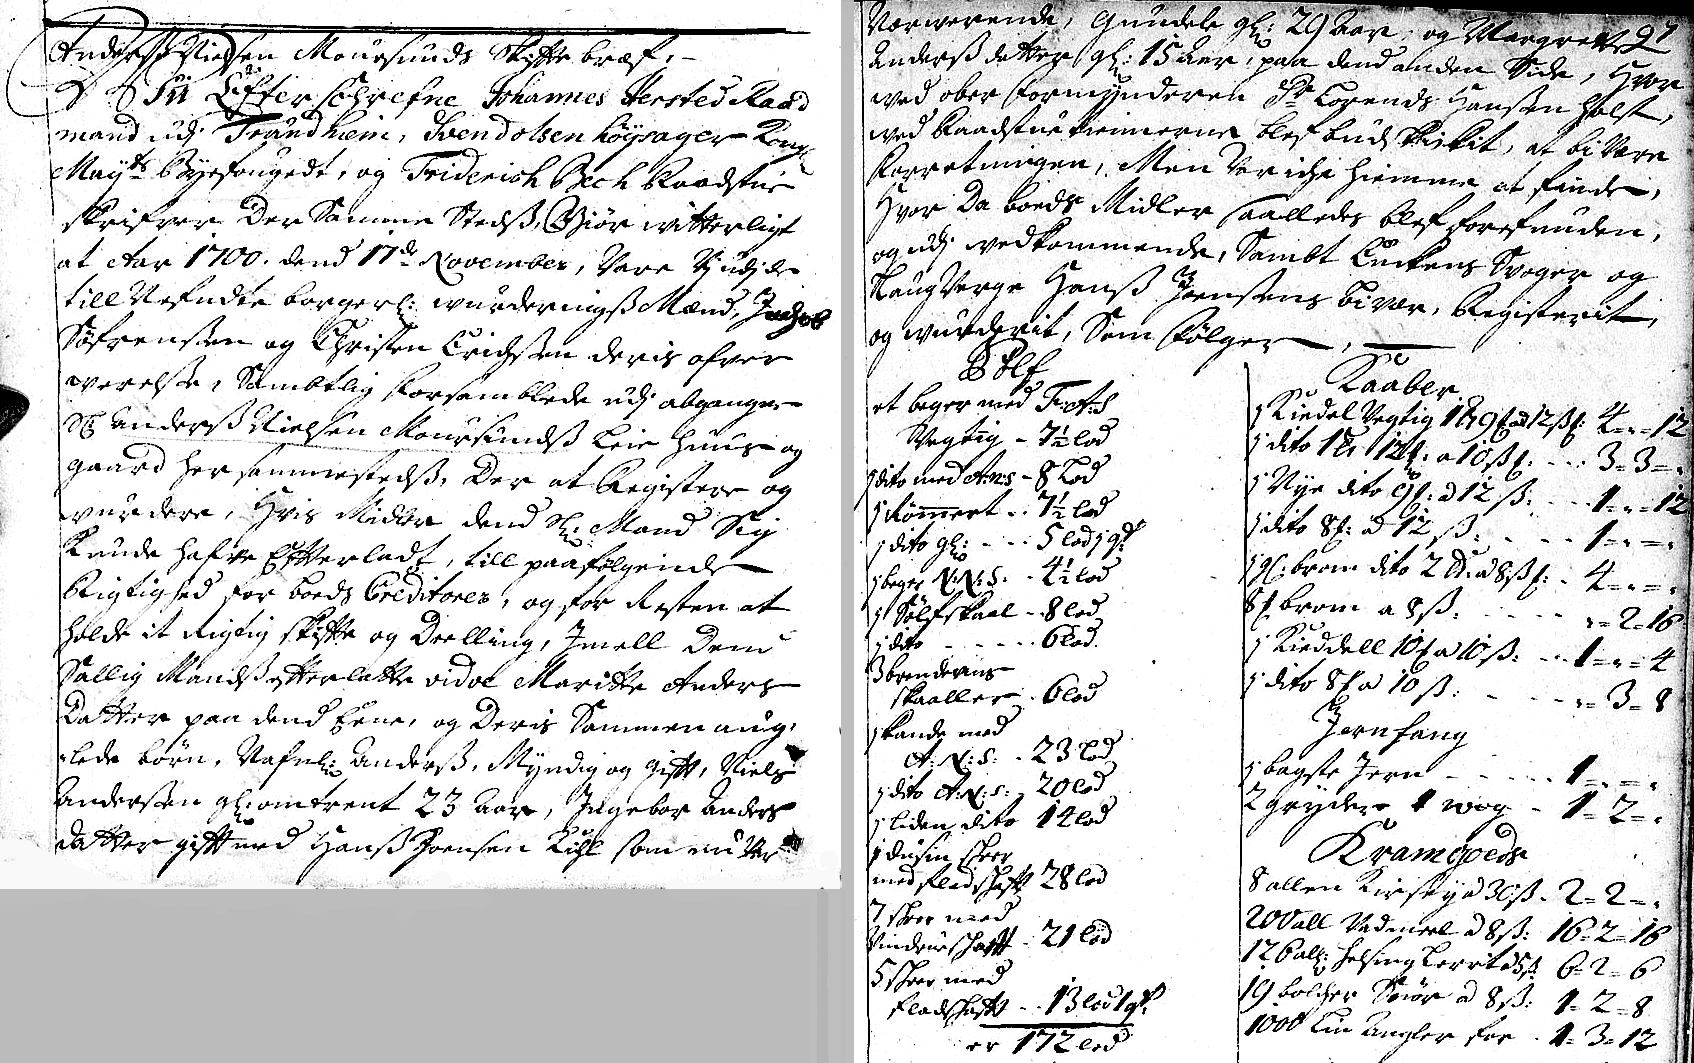 Anderss Nielsen Moursunds Skifte bref,
Vi Efterschrefne Johannes Hersted Raad
mand udj Trundhiem, Svend olsen Høysager Kong
Mayts Byefougedt, og Friderich Bech Raadstue
skrifver der Samme Stedss, Giør witterligt
at Aar 1700. dend 17de November, Vare Vj udj de
till Nefndte borgerl: wurderingss Mænd, Jachob
Søfrenssen og Christen Erichssen deris ofver
werelsse, Sambtlig forsamblede udj afgangne
Sl Anderss Nielsen Moursundss Leie huus og
gaard her sammestedss, der at Registere og
wurdere, Hvis Midler dend Sl: Mand Sig
kunde hafve Efterladt, till paafølgende
Rigtighed for boeds Creditorer, og for Resten at
holde it Rigtig skifte og Deelling, Imell Dend
Sallig Mandss efterlatte vidve Maritte Anders
Datter paa dend Eene, og Deris Sammen aug-
lede børn, Nafnl: Anderss, Myndig og gift, Niels
Anderssen gl: omtrent 23 Aar, Ingebor Anders
datter gift med Hanss Joensen Kiil som nu Var
Nærwerende, Gundele gl: 29 Aar, og Margrette
97
Anderss datter gl: 15 Aar, paa dend anden Side, Hvor
wed ober formynderen Sr Lorends Hanssen Holst,
wed Raadstue tienerne blef bud skikit, at bi Være
forretningen, Men Var iche hiemme at finde,
Hvor Da boeds Midler saalledes blef forefunden,
og udj wedkommende, Sambt Enkens Svoger og
Laug Verge Hanss Joenssens bivær, Registerit,
og wurderit, Som følger
Sølf
et beger med F:A:S
Vegtig - 7½ lod
1 dito med A:N:S - 8 Lod
1 Rommert .. 7½ lod
1 dito gl: - - - 5 lod 1 qt:
1 beger N:N:S: - 4½ lod
1 Sølfskaal - 8 lod
1 dito - - - - 6 lod
3 brendevins
skaaller - 6 lod
1 kande med
A:N:S: - 23 lod
1 dito A:N:S: - 20 lod
1 liden dito 14 lod
1 dusin skeer
med fladskaft 28 lod
7 skeer med
Vindrueskaft - 21 lod
5 skeer med
fladskaft - - 13 lod 1 qt:
er 172 lod
Kaaber
1 Kiedel Vegtig 1 9 a 12 ss 4 = " = 12
1 dito 1 12 a 10 ss - - 3 = 3 = "
1 Nye dito 9 : a 12 ss: - - 1 = " = 12
1 dito 8 : a 12 ss: - - - 1 = " = "
1 gl: brom dito 2 a 8 ss - 4 = " = "
8 brom a 8 ss: - - - - " = 2 = 16
1 Kieddell 10 a 10 ss: - - 1 = " = 4
1 dito 8 a 10 ss: - - - " = 3 = 8
Jernfang
1 bagste Jern - - - - 1 = " = "
2 gryder 1 wog - 1 = 2 = "
Kramgods
8 allen Kirsey a 30 ss - 2 = 2 = "
200 all Vadmeel a 8 ss: 16 = 2 = 16
126 all: helsing Lerrit a 5 ss 6 = 2 = 6
19 bolcher Snør a 8 ss: 1 = 2 = 8
1000 Lin Angler for - 1 = 3 = 12